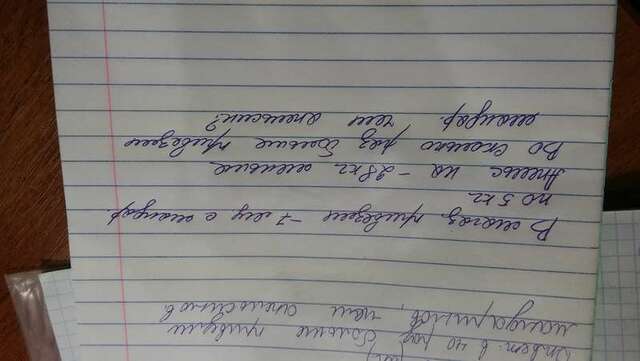 Ответ: в 40 раз больше привезли
мандаринов, чем апельсинов
В магаз. привезли -7 ящ с мандар.
по 5 кг.
Апельс на -28 кг меньше
Во сколько раз больше привезли
мандар. чем апельсин?